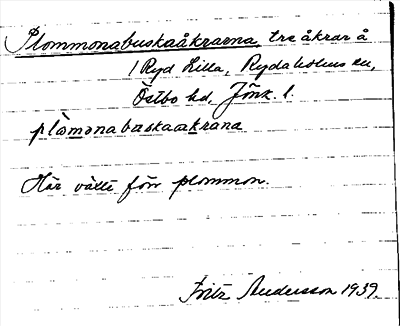 Plommonabuskaåkrarna, tre åkrar å
1 Ryd Lilla, Rydaholms sn,
Östbo hd, Jönk. l.
plòmonabuskaakrana
Här växte förr plommon.
Fritz Andersson 1939.